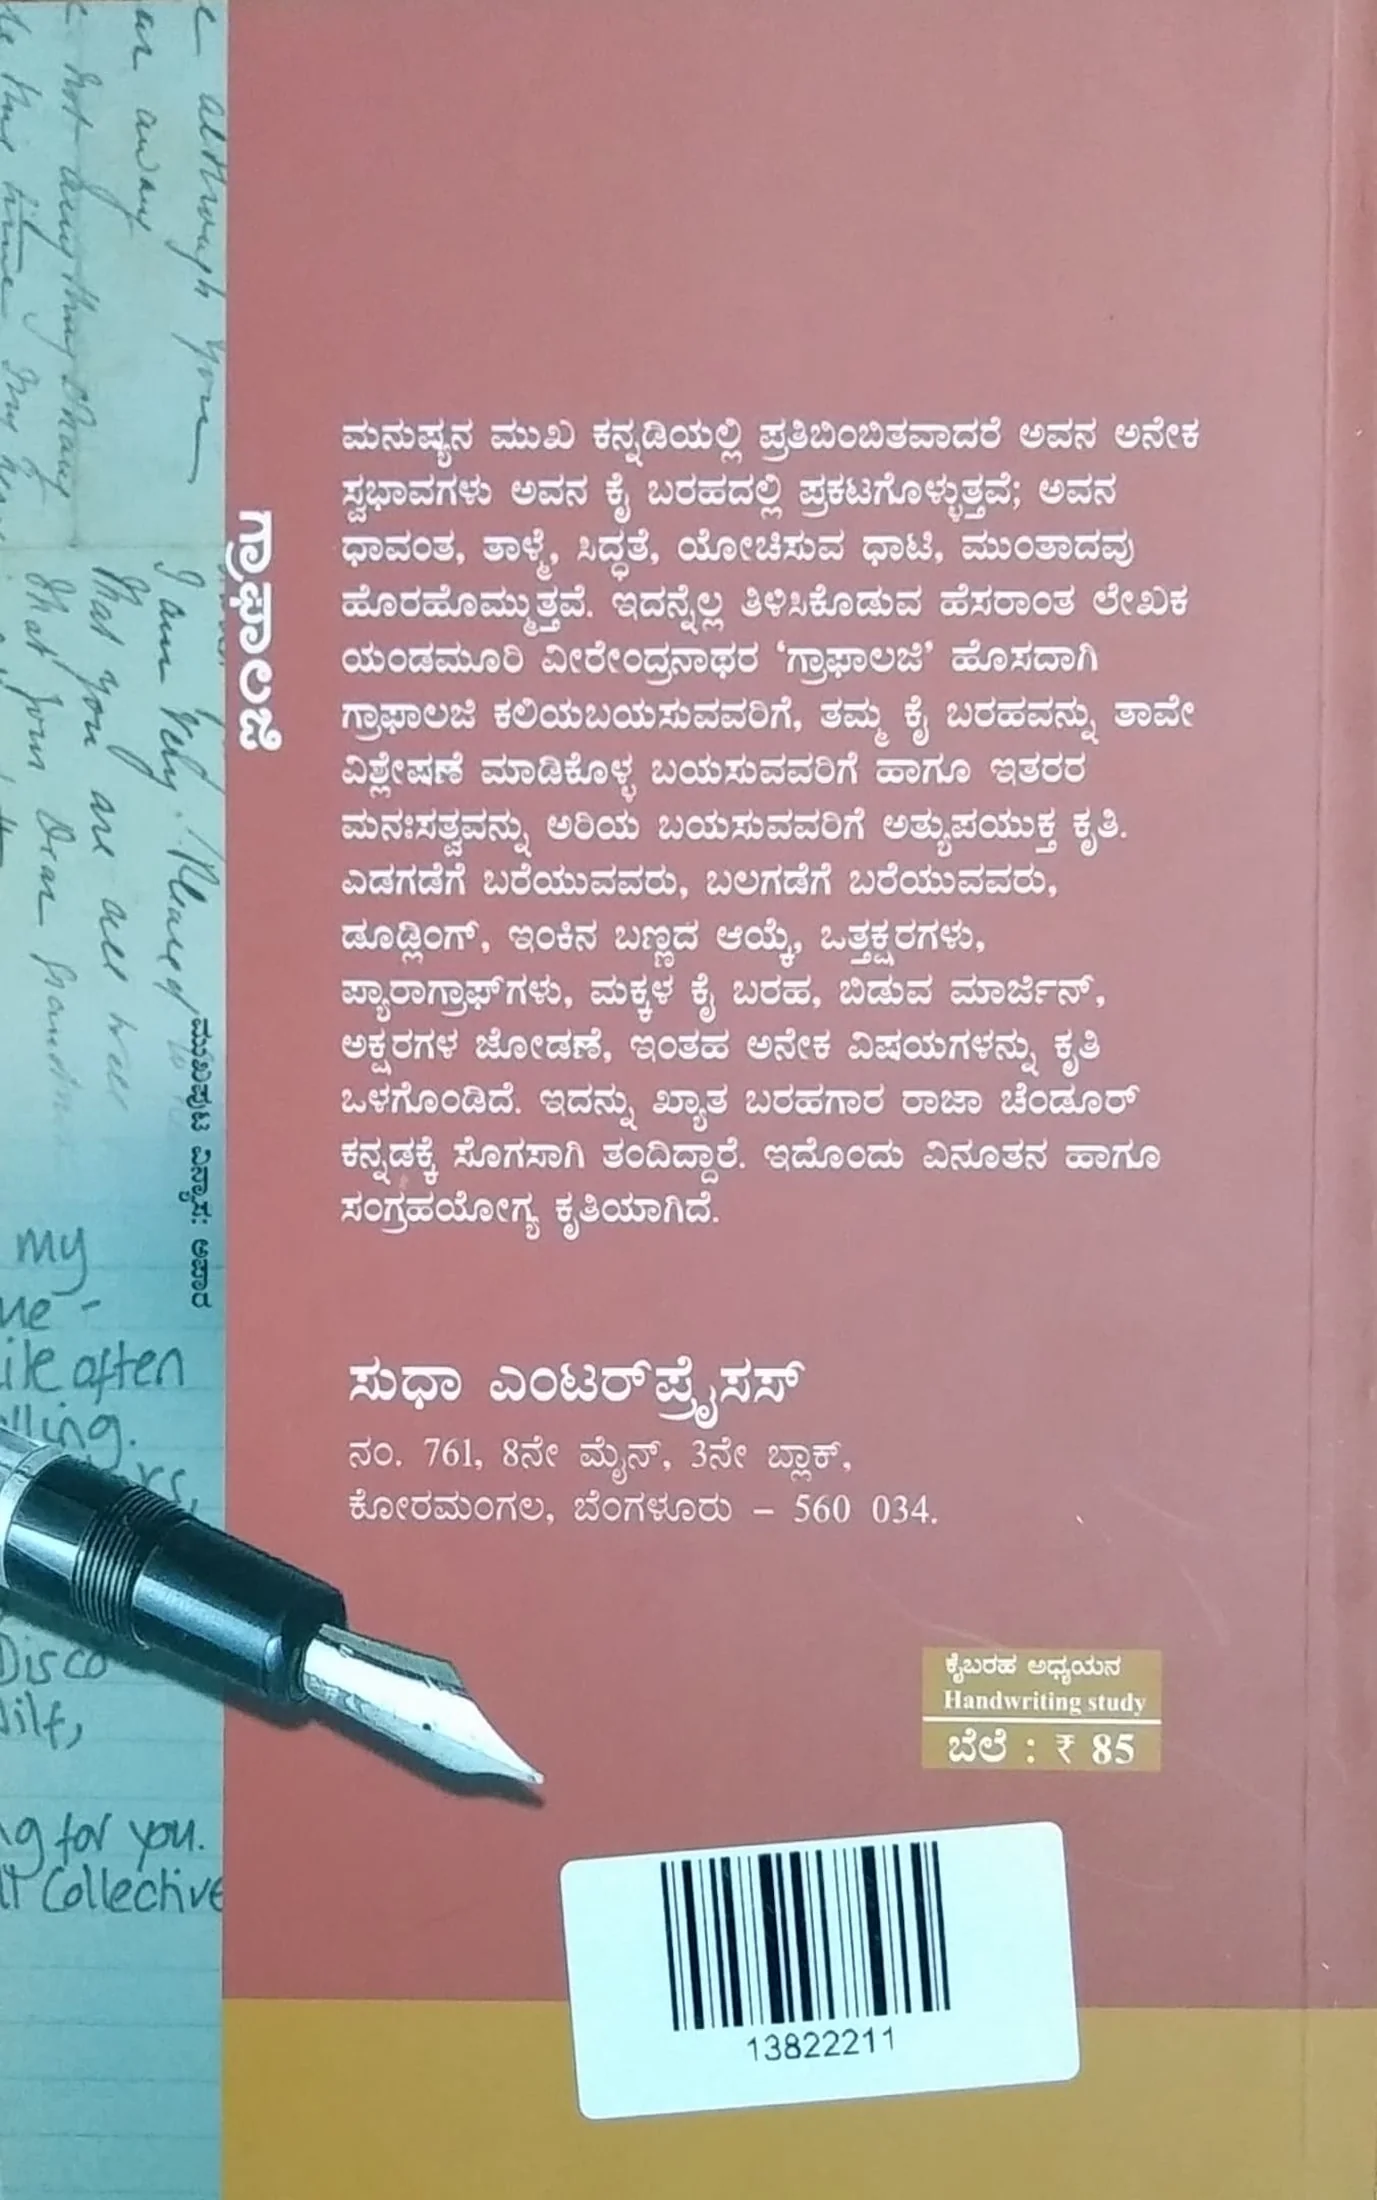 ಗ್ರಾಫಾಲಜಿ
ಮನುಷ್ಯನ ಮುಖ ಕನ್ನಡಿಯಲ್ಲಿ ಪ್ರತಿಬಿಂಬಿತವಾದರೆ ಅವನ ಅನೇಕ
ಸ್ವಭಾವಗಳು ಅವನ ಕೈ ಬರಹದಲ್ಲಿ ಪ್ರಕಟಗೊಳ್ಳುತ್ತವೆ; ಅವನ
ಧಾವಂತ, ತಾಳ್ಮೆ, ಸಿದ್ಧತೆ, ಯೋಚಿಸುವ ಧಾಟಿ, ಮುಂತಾದವು
ಹೊರಹೊಮ್ಮುತ್ತವೆ. ಇದನ್ನೆಲ್ಲ ತಿಳಿಸಿಕೊಡುವ ಹೆಸರಾಂತ ಲೇಖಕ
ಯಂಡಮೂರಿ ವೀರೇಂದ್ರನಾಥರ ‘ಗ್ರಾಫಾಲಜಿ’ ಹೊಸದಾಗಿ
ಗ್ರಾಫಾಲಜಿ ಕಲಿಯಬಯಸುವವರಿಗೆ, ತಮ್ಮ ಕೈ ಬರಹವನ್ನು ತಾವೇ
ವಿಶ್ಲೇಷಣೆ ಮಾಡಿಕೊಳ್ಳ ಬಯಸುವವರಿಗೆ ಹಾಗೂ ಇತರರ
ಮನಃಸತ್ವವನ್ನು ಅರಿಯ ಬಯಸುವವರಿಗೆ ಅತ್ಯುಪಯುಕ್ತ ಕೃತಿ.
ಎಡಗಡೆಗೆ ಬರೆಯುವವರು, ಬಲಗಡೆಗೆ ಬರೆಯುವವರು,
ಡೂಡ್ಲಿಂಗ್, ಇಂಕಿನ ಬಣ್ಣದ ಆಯ್ಕೆ, ಒತ್ತಕ್ಷರಗಳು,
ಪ್ಯಾರಾಗ್ರಾಫ್‌ಗಳು, ಮಕ್ಕಳ ಕೈ ಬರಹ, ಬಿಡುವ ಮಾರ್ಜಿನ್,
ಅಕ್ಷರಗಳ ಜೋಡಣೆ, ಇಂತಹ ಅನೇಕ ವಿಷಯಗಳನ್ನು ಕೃತಿ
ಒಳಗೊಂಡಿದೆ. ಇದನ್ನು ಖ್ಯಾತ ಬರಹಗಾರ ರಾಜಾ ಚೆಂಡೂರ್
ಕನ್ನಡಕ್ಕೆ ಸೊಗಸಾಗಿ ತಂದಿದ್ದಾರೆ. ಇದೊಂದು ವಿನೂತನ ಹಾಗೂ
ಸಂಗ್ರಹಯೋಗ್ಯ ಕೃತಿಯಾಗಿದೆ.
ಮುಖಪುಟ ವಿನ್ಯಾಸ: ಅಪಾರ
ಸುಧಾ ಎಂಟರ್‌ಪ್ರೈಸಸ್
ನಂ. 761, 8ನೇ ಮೈನ್, 3ನೇ ಬ್ಲಾಕ್,
ಕೋರಮಂಗಲ, ಬೆಂಗಳೂರು – 560 034.
ಕೈಬರಹ ಅಧ್ಯಯನ
Handwriting study
ಬೆಲೆ : ₹ 85
13822211
although you
away
not anything
I am very
that you are all well
that your dear
my
often
Disco
for you.
Collective